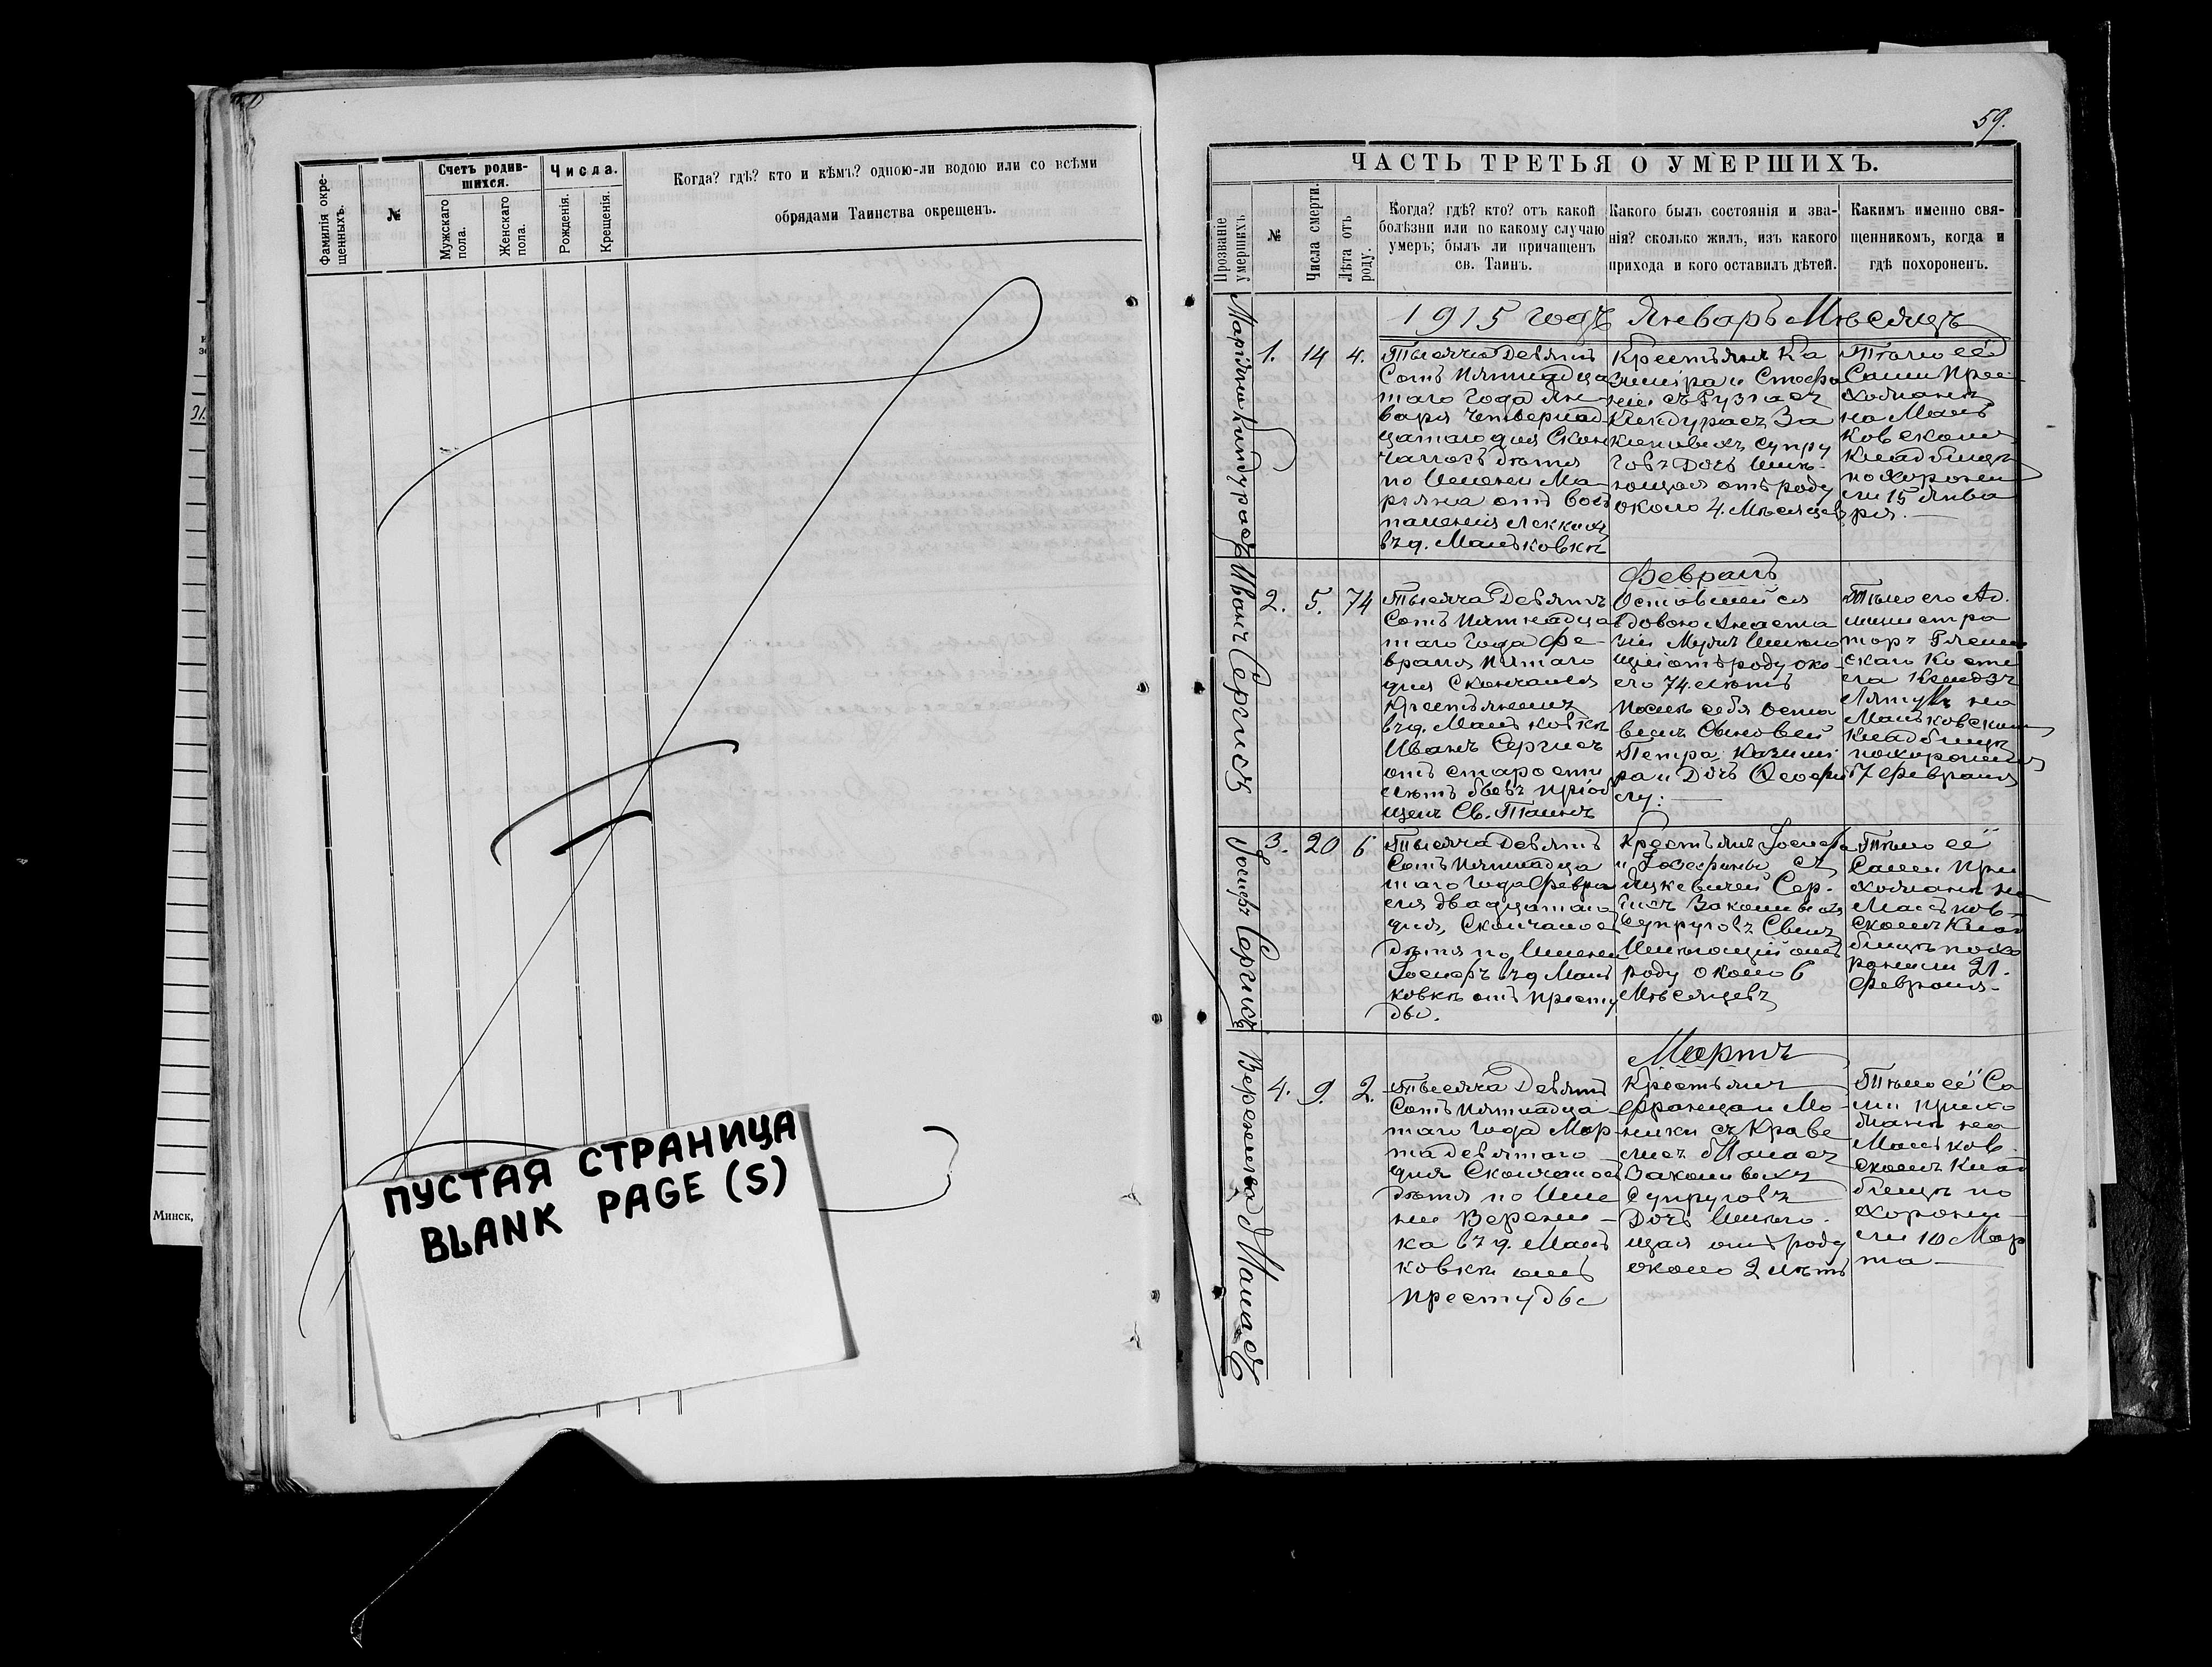 Фамилія окре-
щенныхъ.
№
Счетъ родив-
шихся.
Мужскаго
пола.
Женскаго
пола.
Числа.
Рожденія.
Крещенія.
Когда? гдѣ? кто и кѣмъ? одною-ли водою или со всѣми
обрядами Таинства окрещенъ.
ПУСТАЯ СТРАНИЦА
BLANK PAGE (S)
Минск,
59.
ЧАСТЬ ТРЕТЬЯ О УМЕРШИХЪ.
Прозваніе
умершихъ
№
Числа смерти.
Лѣта отъ
роду.
Когда? гдѣ? кто? отъ какой
болѣзни или по какому случаю
умеръ; былъ ли причащенъ
св. Таинъ.
Какого былъ состоянія и зва-
нія? сколько жилъ, изъ какого
прихода и кого оставилъ дѣтей.
Какимъ именно свя-
щенникомъ, когда и
гдѣ похороненъ.
1915 годъ Январь Мѣсяцъ
1. 14 4.
Тысяча Девять
Сотъ Пятнадца
таго Года Ян
варя Четвернад
цатаго дня Скон
чалось дитя
по Имени Ма
ріяна отъ Вос
паленія Легкихъ
въ д. Маньковки
Крестьянъ Ка
зиміра и Стефа
ніи съ
Киндурасъ За
конныхъ Супру
говъ Дочь Имѣ-
ющая отъ роду
около 4. Мѣсяцевъ
Тѣло её
Сами При
хожанѣ
на Мань
ковскомъ
Кладбищѣ
похорони
ли 15 Янва
ря.
Иванъ Сергисъ
Февраль
2. 5. 74
Тысяча Девять
Сотъ Пятнадца
таго Года Фе-
враля Пятаго
дня Скончался
Крестьянинъ
въ д. Маньковки
Иванъ Сергисъ
отъ старости
лѣтъ бывъ пріоб
щенъ Св. Таинъ
Оставшейся
вдовою Анаста
зіи Мужъ Имѣю
щій отъ роду око-
ло 74. лѣтъ
Послѣ себя Оста
вилъ Сыновей
Петра, Казимі
ра и Дочь
Тѣло его Ад.
министра
торъ
скаго Косте
ла Ксендзъ
на
Маньковскомъ
Кладбищѣ
похоронилъ
7 Февраля
Іосифъ Сергисъ
3. 20 6
Тысяча Девять
Сотъ Пятнадца
таго Года Февра
ля двадцатаго
дня, Скончалось
дитя по Имени
Іосифъ въ д Мань
ковки отъ Просту
ды.
Крестьянъ Іосифа
и Іозефины съ
Яцкевичей Сер-
гисъ Законныхъ
Супруговъ Сынъ
Имѣющій отъ
роду около 6
Мѣсяцевъ
Тѣло её
Сами При
хожанѣ на
Маньков-
скомъ Клад
бищѣ похо
ронили 21.
Февраля.
Вероника
Мартъ
4. 9. 2.
Тысяча Девять
Сотъ Пятнадца
таго Года Мар-
та девятаго
дня Скончалось
дитя по Име
ни Верони-
ка въ д. Мань
ковки отъ
Простуды
Крестьянъ
Франца и Мо-
ники съ
Законныхъ
Супруговъ
Дочь Имѣю-
щая отъ роду
около 2 лѣтъ
Тѣло её Са
ми прихо
жанѣ на
Маньков
скомъ Клад
бищѣ по
хорони-
ли 10 Мар
та